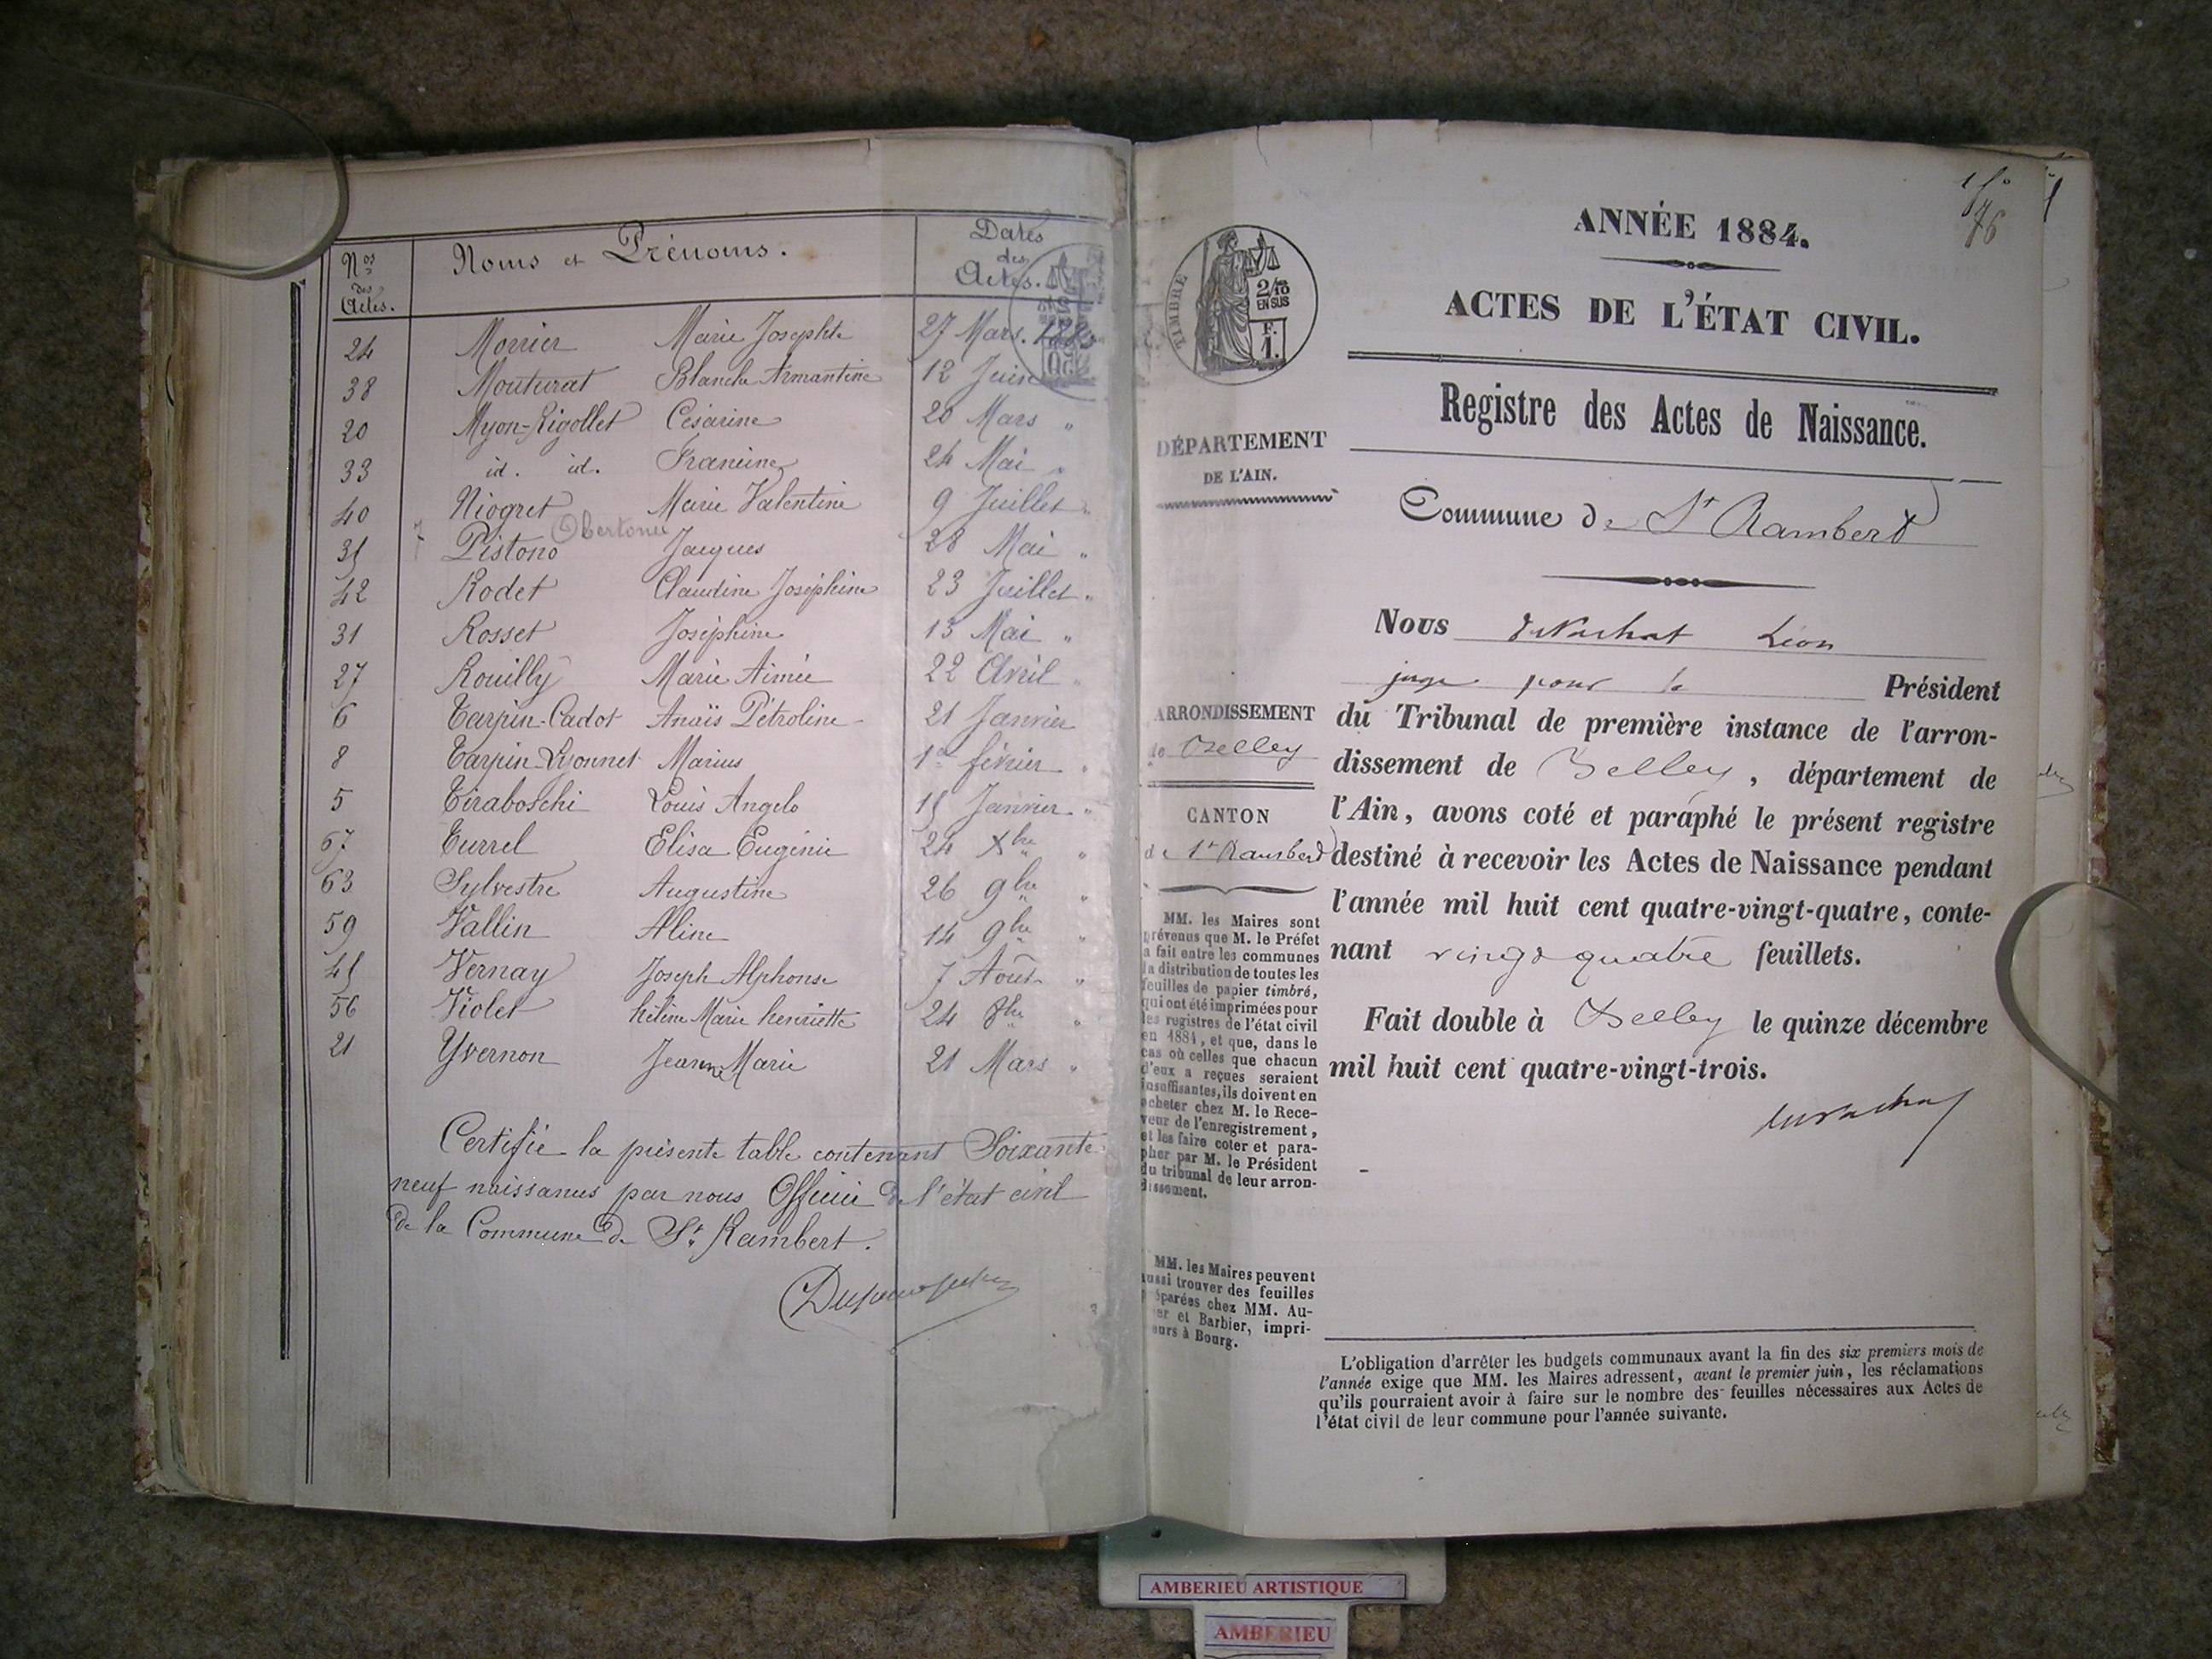 Nos des Actes.
Noms et Prénoms.
Dates des Actes.
24 Morrier Marie Josephte 27 Mars.
38 Mouturat Blanche Armantine 12 Juin
20 Myon-Rigollet Césarine 20 Mars "
33 id. id. Francine 24 Mai "
40 Niogret Marie Valentine 9 Juillet "
Obertone
35 Pistono Jacques 28 Mai "
42 Rodet Claudine Joséphine 23 Juillet "
31 Rosset Joséphine 13 Mai "
27 Rouilly Marie Aimée 22 Avril "
6 Tarpin-Cadot Anaïs Pétroline 21 Janvier
8 Tarpin-Lyonnet Marius 1er février "
5 Tiraboschi Louis Angelo 15 Janvier "
67 Turrel Elisa Eugénie 24 Xbre "
63 Sylvestre Augustine 26 9bre "
59 Vallin Aline 14 9bre "
45 Vernay Joseph Alphonse 7 Août "
56 Violet hélène Marie henriette 24 8bre "
21 Yvernon Jeanne Marie 21 Mars "
Certifié la présente table contenant Soixante
neuf naissances par nous Officier de l'état civil
de la Commune de St Rambert.
1 fo
76
ANNÉE 1884.
ACTES DE L'ÉTAT CIVIL.
Registre des Actes de Naissance.
TIMBRE
2/10
EN SUS
F.
1.
DÉPARTEMENT
DE L'AIN.
Commune de St Rambert
Nous Léon
juge pour le Président
du Tribunal de première instance de l'arron-
dissement de Belley, département de
l'Ain, avons coté et paraphé le présent registre
destiné à recevoir les Actes de Naissance pendant
l'année mil huit cent quatre-vingt-quatre, conte-
nant vingt quatre feuillets.
Fait double à Belley le quinze décembre
mil huit cent quatre-vingt-trois.
ARRONDISSEMENT
de Belley
CANTON
de St Rambert
MM. les Maires sont
prévenus que M. le Préfet
a fait entre les communes
la distribution de toutes les
feuilles de papier timbré,
qui ont été imprimées pour
les registres de l'état civil
en 1884, et que, dans le
cas où celles que chacun
d'eux a reçues seraient
insuffisantes, ils doivent en
acheter chez M. le Rece-
veur de l'enregistrement,
et les faire coter et para-
pher par M. le Président
du tribunal de leur arron-
dissement.
MM. les Maires peuvent
aussi trouver des feuilles
préparées chez MM. Au-
er et Barbier, impri-
eurs à Bourg.
L'obligation d'arrêter les budgets communaux avant la fin des six premiers mois de
l'année exige que MM. les Maires adressent, avant le premier juin, les réclamations
qu'ils pourraient avoir à faire sur le nombre des feuilles nécessaires aux Actes de
l'état civil de leur commune pour l'année suivante.
AMBERIEU ARTISTIQUE
AMBERIEU